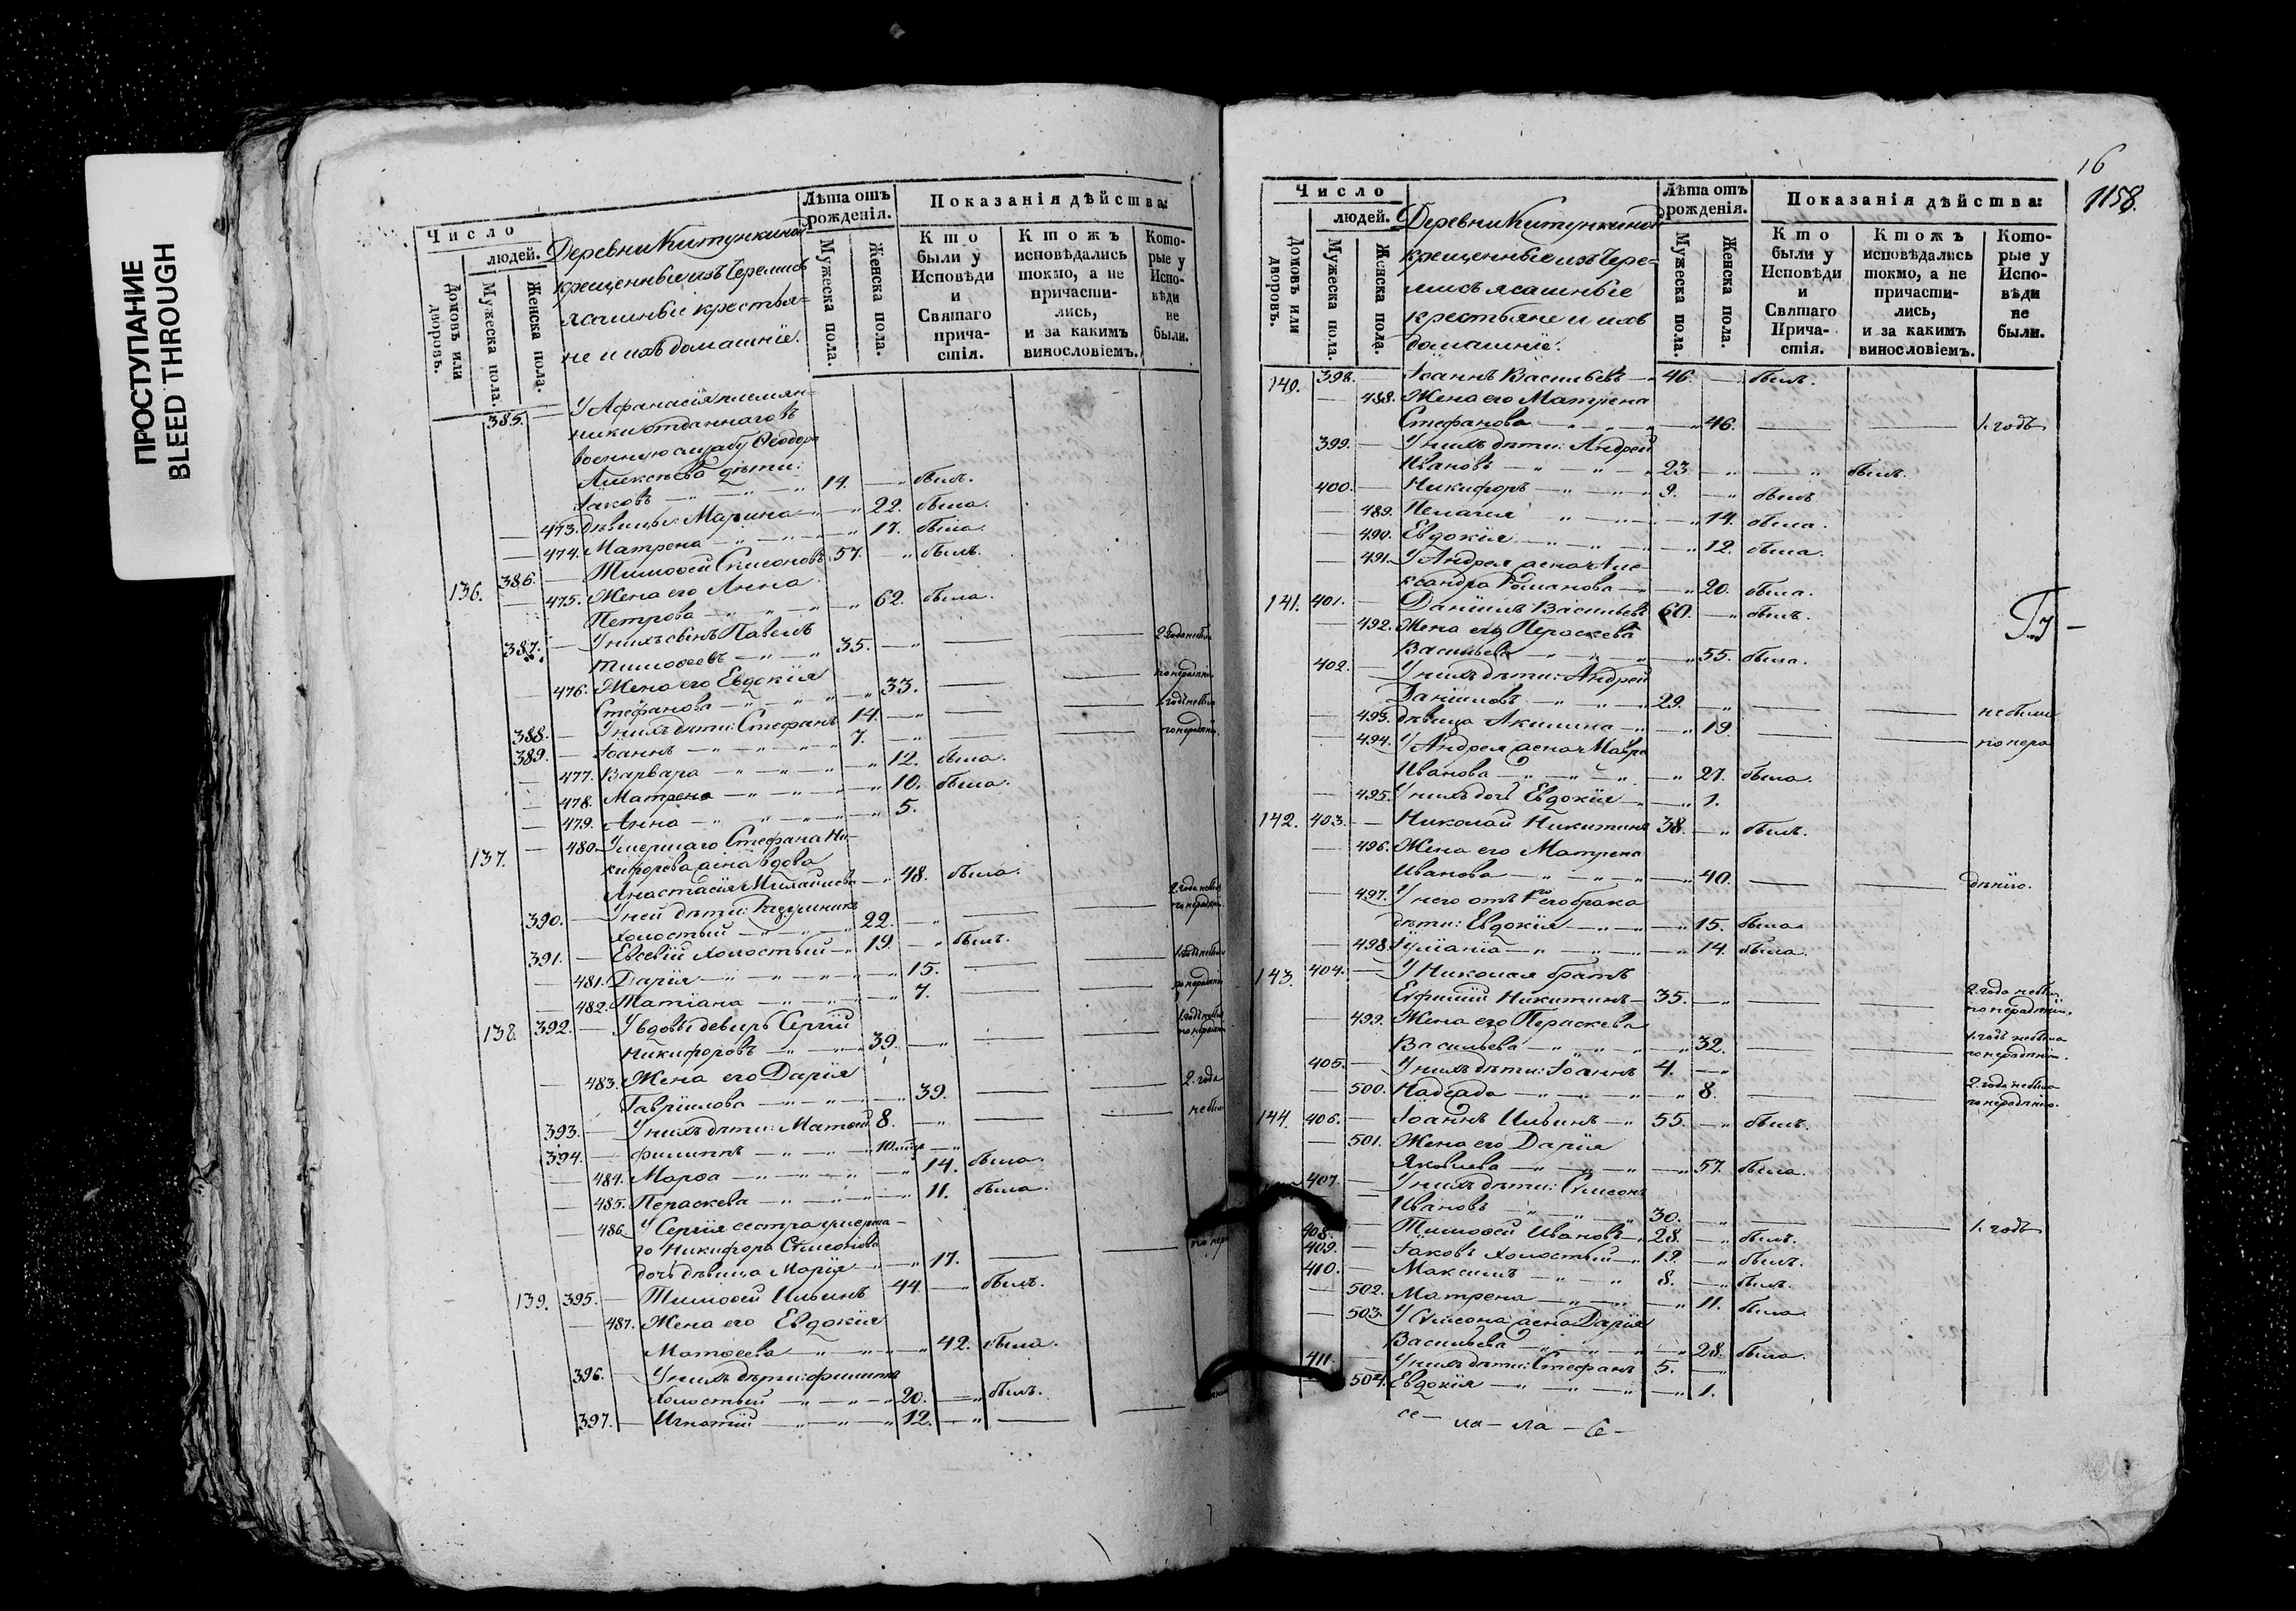 ПРОСТУПАНИЕ
BLEED THROUGH
Число
людей.
Домовъ или дворовъ.
Мужеска пола.
Женска пола.
Деревни Китункиной
крещенные изъ Черемисъ
ясашные крестья-
не и ихъ домашніе.
Лѣта отъ рожденія.
Мужеска пола.
Женска пола.
Показанія дѣйства:
Кто были у Исповѣди и Святаго причастія.
Ктожъ исповѣдались токмо, а не причастились, и за какимъ винословіемъ.
Которые у Исповѣди не были.
385. У Афанасія племян-
ники отданнаго въ
военную службу Ѳеодора
Алексѣева дѣти:
Іаковъ 14. былъ.
473. дѣвицы: Марина 22. была.
474. Матрена 17. была.
136. 386. Тимоѳей Симеоновъ 57. былъ.
475. Жена его Анна
Петрова 62. была.
387. У нихъ сынъ Павелъ
Тимоѳеевъ 35. 2 года не былъ
476. Жена его Евдокія
Стефанова 33.
388. У нихъ дѣти: Стефанъ 14.
389. Іоаннъ 7.
477. Варвара 12. была.
478. Матрена 10. была.
479. Анна 5.
137. 480. Умершаго Стефана Ни-
кифорова жена вдова
Анастасія Михайлова 48. была.
390. У ней дѣти:
холостый 22. 2 года не былъ
391. Евсевій холостый 19. былъ.
481. Дарія 15.
482. Татіана 7.
138. 392. У вдовы деверь Сергій
Никифоровъ 39.
483. Жена его Дарія
Гавриилова 39. 2. года
393. У нихъ дѣти: Матѳей 8.
394. Филиппъ 10.
484. Марѳа 14. была.
485. Параскева 11. была.
486. У Сергія сестра умерша-
го Никифора Симеонова
дочь дѣвица Марія 17.
139. 395. Тимоѳей Ильинъ 44. былъ.
487. Жена его Евдокія
Матѳеева 42. была.
396. У нихъ дѣти: Филиппъ
холостый 20. былъ.
397. Игнатій 12.
16
1158.
Число
людей.
Домовъ или дворовъ.
Мужеска пола.
Женска пола.
Деревни Китункиной
крещенные изъ Чере-
мисъ ясашные
крестьяне и ихъ
домашніе.
Лѣта отъ рожденія.
Мужеска пола.
Женска пола.
Показанія дѣйства:
Кто были у Исповѣди и Святаго Причастія.
Ктожъ исповѣдались токмо, а не причастились, и за какимъ винословіемъ.
Которые у Исповѣди не были.
140. 398. Іоаннъ Васильевъ 46. былъ.
488. Жена его Матрена
Стефанова 46. 1. годъ
399. У нихъ дѣти: Андрей
Ивановъ 23. былъ.
400. Никифоръ 9. былъ
489. Пелагія 14. была.
490. Евдокія 12. была.
491. У Андрея жена Але-
ксандра Романова 20. была.
141. 401. Даніилъ Васильевъ 60. былъ.
492. Жена его Параскева
Васильева 55. была.
402. У нихъ дѣти: Андрей
Данииловъ 29. не были
493. дѣвица Акилина 19. по нера
494. У Андрея жена Мавра
Иванова 27. была.
495. У нихъ дочь Евдокія 1.
142. 403. Николай Никитинъ 38. былъ.
496. Жена его Матрена
Иванова 40. дѣнію.
497. У него отъ 1го его брака
дѣти: Евдокія 15. была.
498. Іуліанія 14. была.
143. 404. У Николая братъ
Евфимій Никитинъ 35. 2. года не былъ по нерадѣнію.
499. Жена его Параскева
Васильева 32. 1. годъ не была по нерадѣнію.
405. У нихъ дѣти: Іоаннъ 4.
500. Надежда 8. 2. года не была по нерадѣнію.
144. 406. Іоаннъ Ильинъ 55. былъ.
501. Жена его Дарія
Яковлева 57. была.
407. У нихъ дѣти: Симеонъ
Ивановъ 30. 1. годъ
408. Тимоѳей Ивановъ 28. былъ.
409. Іаковъ холостый 19. былъ.
410. Максимъ 8. былъ.
502. Матрена 11. была.
503. У Симеона жена Дарія
Васильева 28. была.
411. У нихъ дѣти: Стефанъ 5.
504. Евдокія 1.